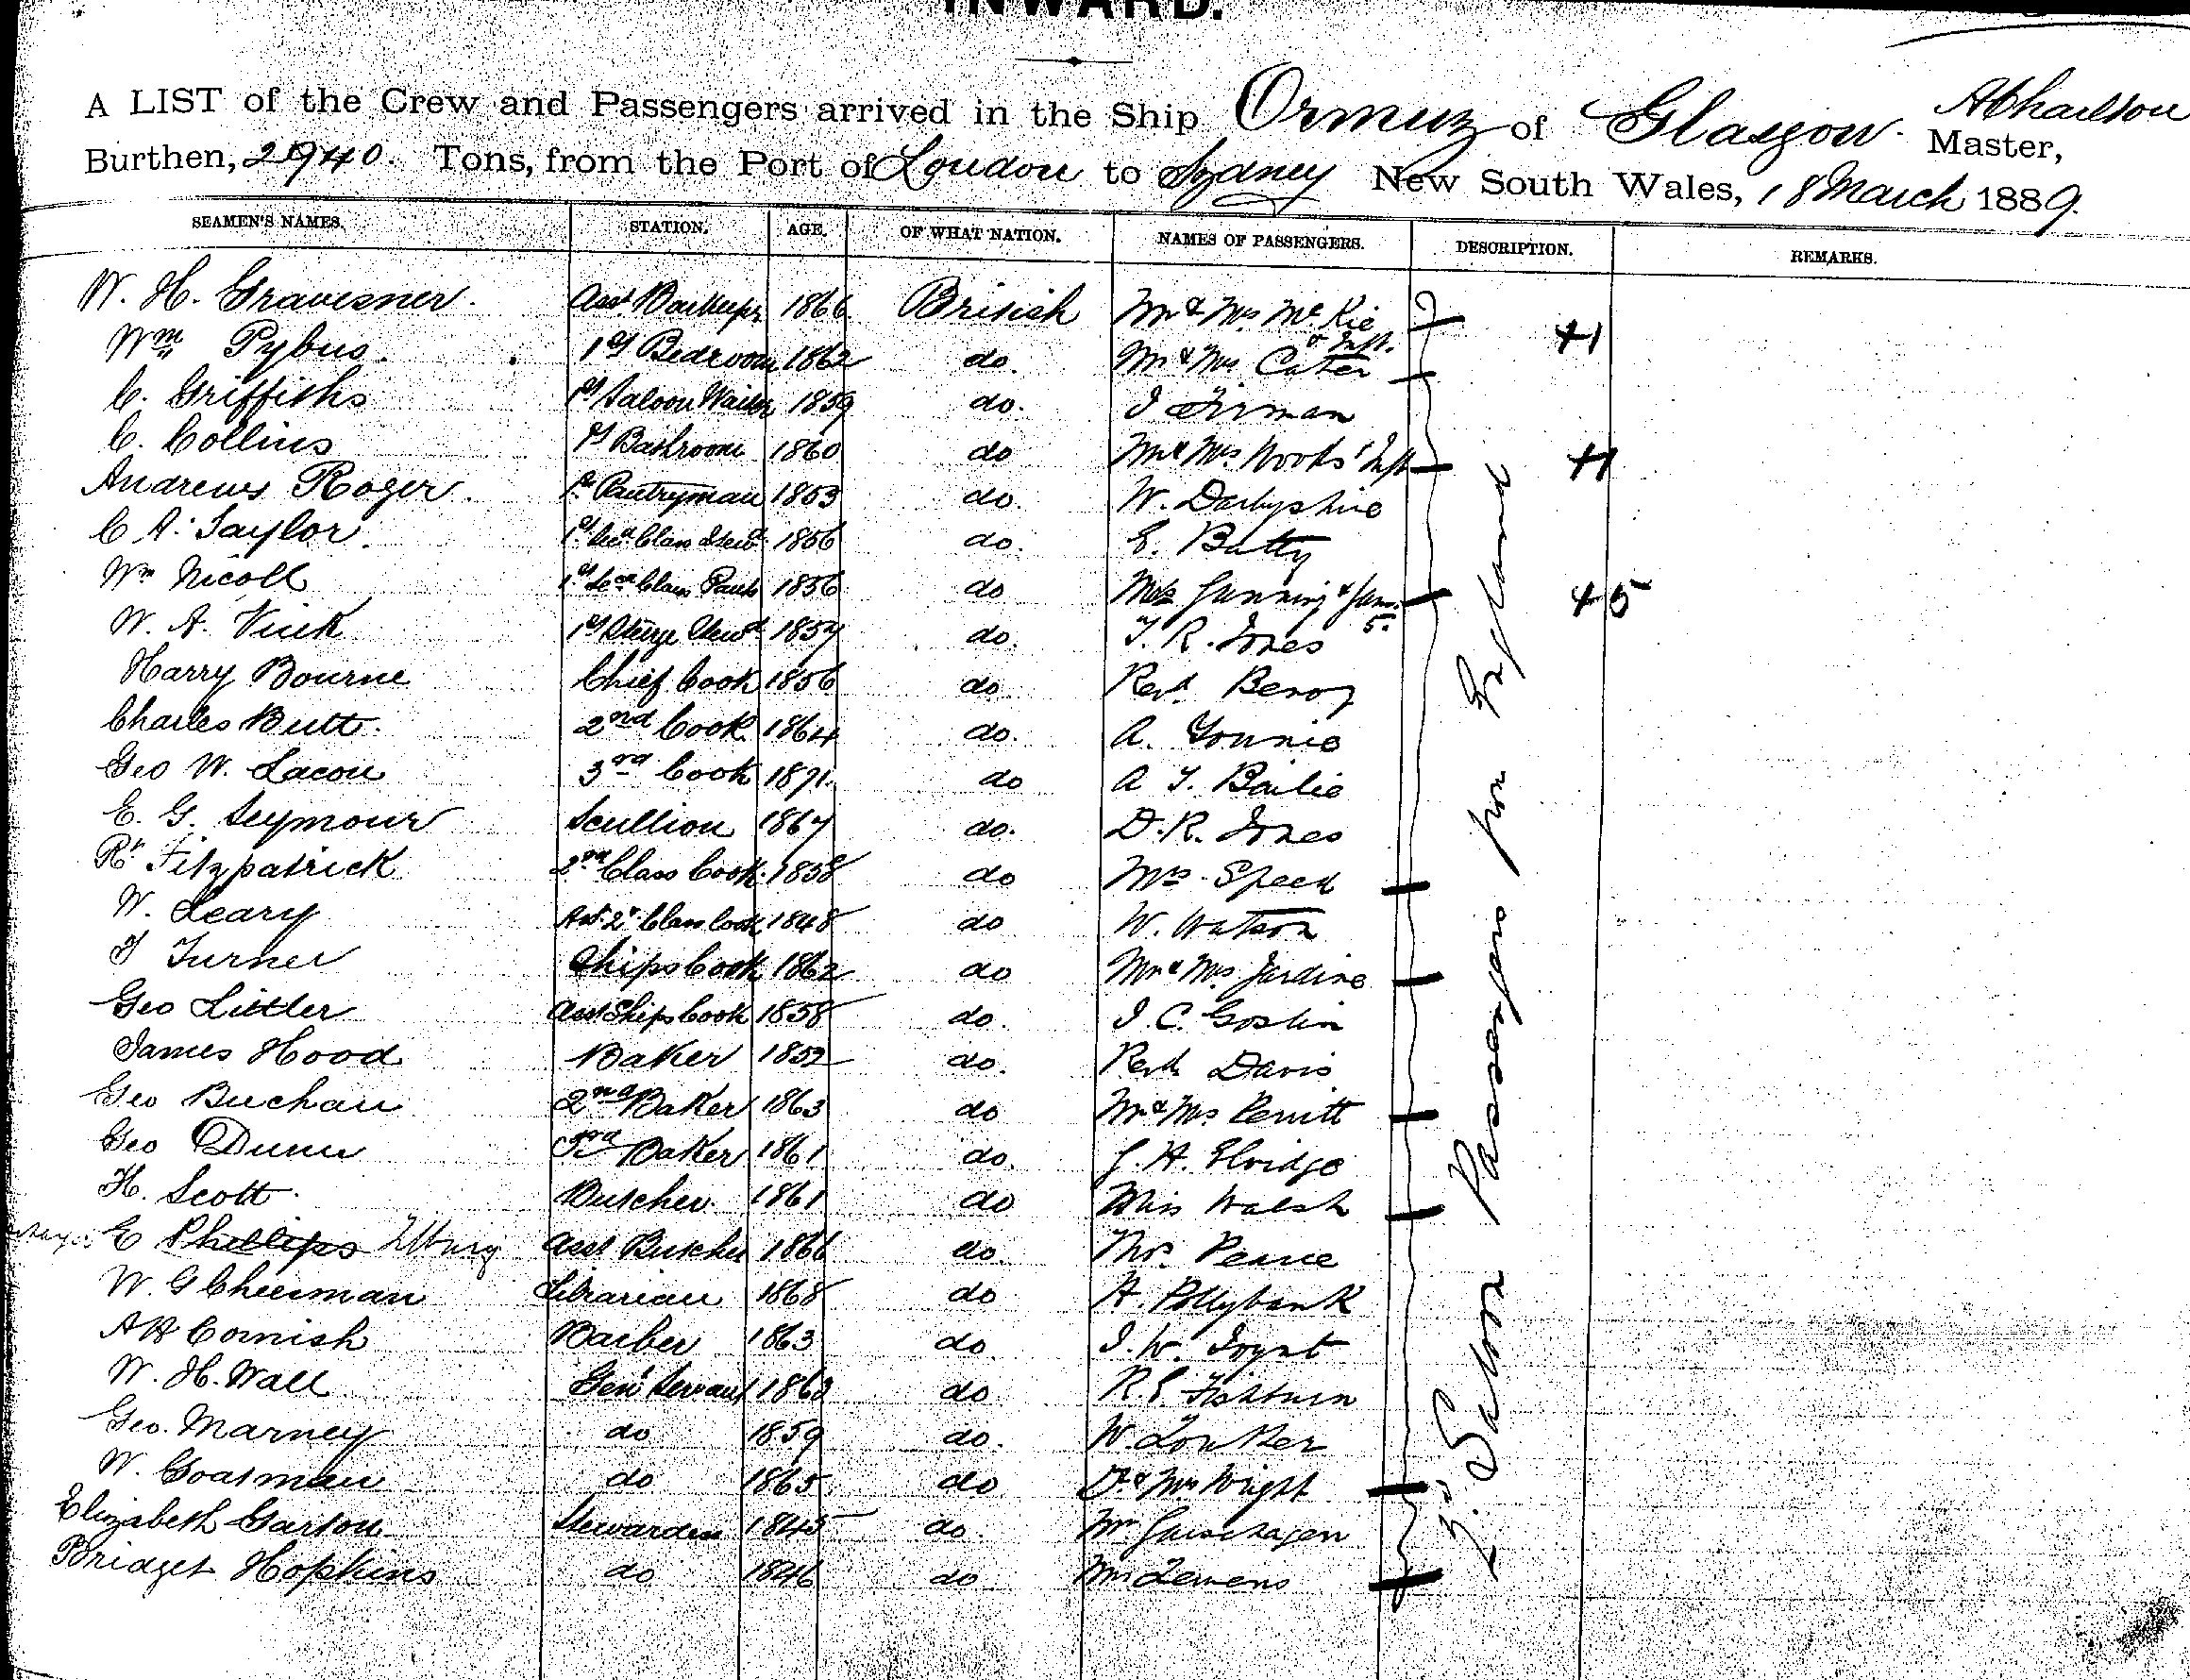 INWARD.
A LIST of the Crew and Passengers arrived in the Ship Ormuz of Glasgow. Master,
Burthen, 2940. Tons, from the Port of London to Sydney New South Wales, 18 March 1889.
SEAMEN'S NAMES. STATION. AGE. OF WHAT NATION. NAMES OF PASSENGERS. DESCRIPTION. REMARKS.
W. H. Gravesner. Asst. Barkeepr 1866 British Mr & Mrs McKie & Inft. +1
Wm Pybus. 1st Bedroom 1862 do. Mr & Mrs Cater
C. Griffiths 1st Saloon Waiter 1859 do. J Firman
C. Collins 1st Bathroom 1860 do Mr & Mrs Woods & Inft +1
Andrews Roger. 1st Pantryman 1853 do. W. Darbyshire
C A. Taylor. 1st Sec. Class Stewd. 1856 do. E. Batty
Wm Nicoll 1st Sec Class Pantr 1856 do Mrs Gunning & fam. 5. +5
W. A. Vick 1st Steerge Stewd 1857 do. T. R. Jones
Harry Bourne Chief Cook 1856 do Revd. Benoy
Charles Butt. 2nd Cook 1864 do. A. Younie
Geo W. Lacon 3rd Cook 1871. do A T. Bailie
E. G. Seymour Scullion 1867 do. D. R. Jones
Rt. Fitzpatrick 2nd Class Cook. 1858 do Mrs Speed
W. Leary Ast. 2d. Class Cook 1848 do W. Watson
T Turner Ships Cook 1862 do Mr & Mrs. Jardine
Geo Littler Asst Ships Cook 1858 do. J. C. Goslin
James Hood Baker 1852 do. Revd. Davis
Geo Buchan 2nd Baker 1863 do Mr & Mrs Perritt
Geo Dunn 3rd Baker 1861 do. J. H. Elvidge
H. Scott. Butcher. 1861 do Miss Walsh
E Phillips Asst Butcher 1866 do. Mrs. Pearce
W. G Cheesman Librarian 1868 do H. Pollybank
A H Cornish Barber 1863 do. J. W. Joynt
W. H. Wall Genl Servant 1862 do R. E. Fishburn
Geo. Marney do 1859 do. W.
W. Goatman do 1865 do Dr & Mrs Wright
Elizabeth Garton Stewardess 1845 do. Mr.
Bridget Hopkins do 1846 do Mr
2d. Saloon Passengers from England